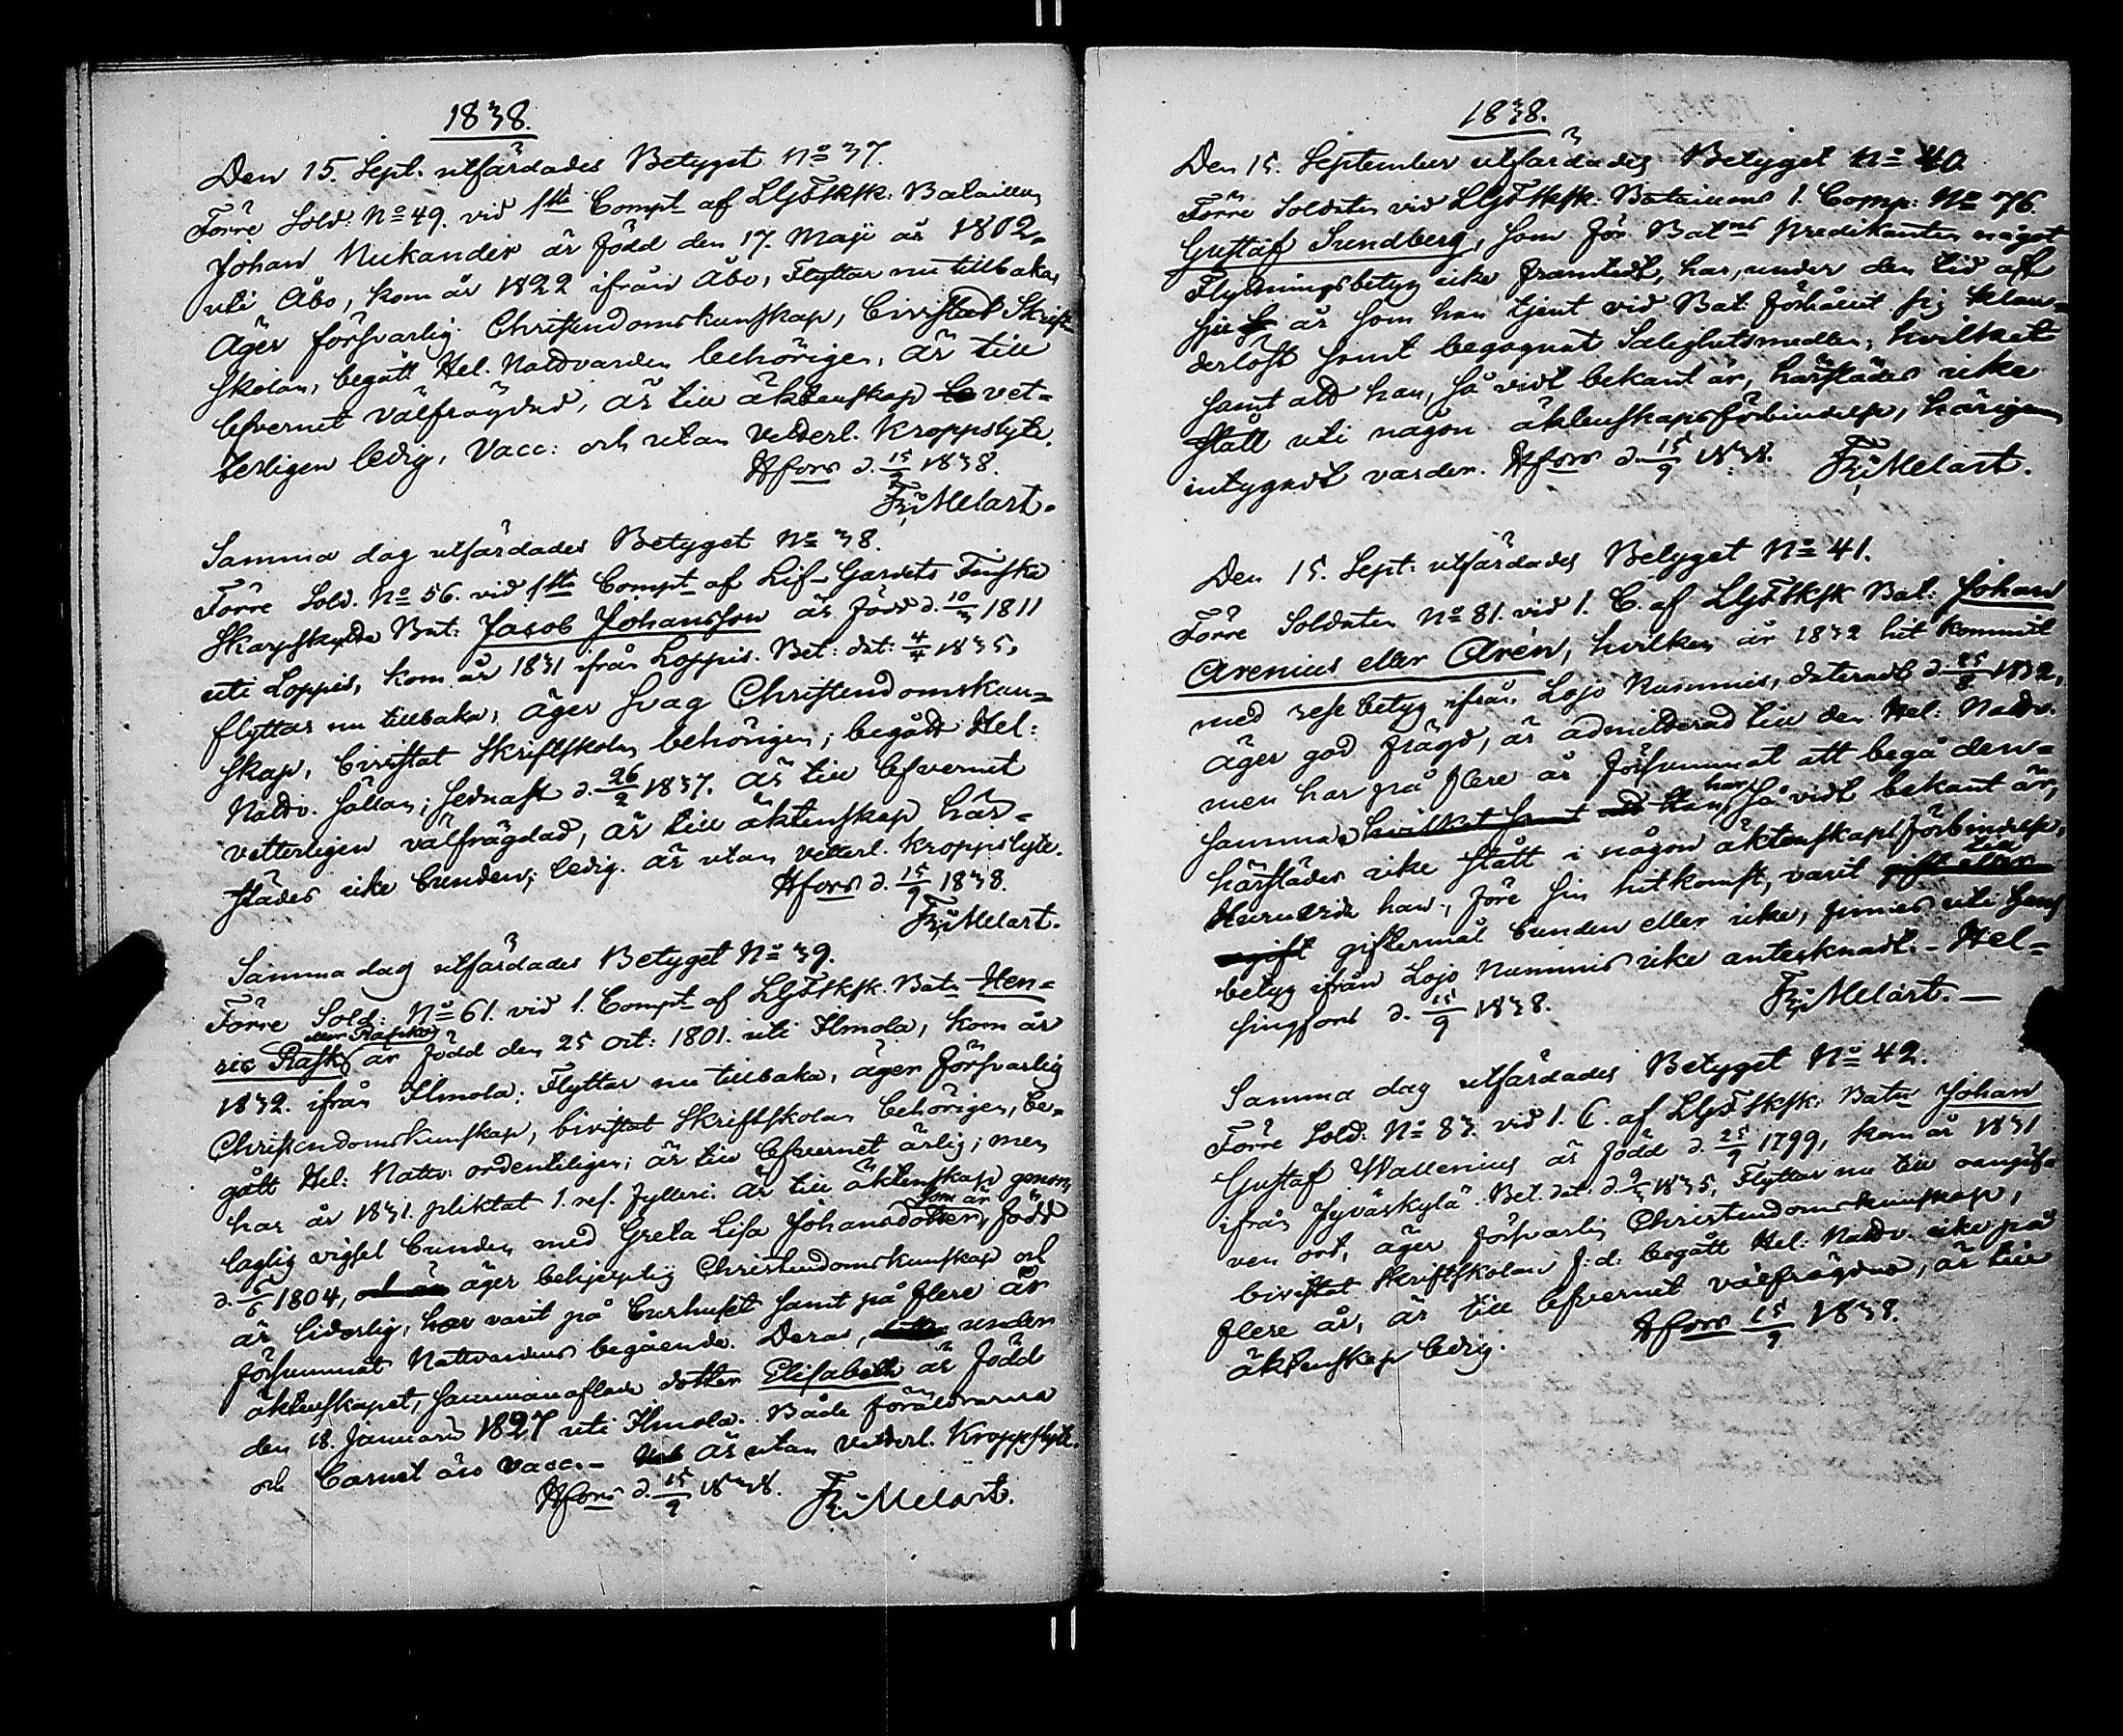 1838.
Den 15. Sept. utfärdades Betyget No 37.
Förre Sold: No 49. vid 1sta Compt af LGdsFSksk: Bataillon
Johan Nukander är född den 17. Maji år 1802.
uti Åbo, kom år 1822 ifrån Åbo, Flyttar nu tillbaka,
Äger försvarlig Christendomskunskap, bivistat Skrift
skolan, begått Hel. Nattvarden behörigen, är till
lefvernet välfrägdad, är till äktenskap vet-
terligen ledig, Vacc: och utan Vetterl. Kroppslyte.
Hfors d. 15/9 1838.
Fr: Melart.
Samma dag utfärdades Betyget No 38.
Förre Sold. No 56. vid 1sta Compt af Lif-Gardets Finska
Skarpskytte Bat: Jacob Johansson är född d. 10/3 1811
uti Loppis, kom år 1831 ifrån Loppis. Bet: dat: 4/4 1835,
flyttar nu tillbaka, äger svag Christendomskun-
skap, bivistat Skriftskolan behörigen; begått Hel:
Nattv. sällan; sednast d. 26/2 1837. är till lefvernet
vetterligen välfrägdad, är till äktenskap här-
städes icke bunden; ledig. är utan vetterl. kroppslyte.
Hfors d. 15/9 1838.
Fr: Melart.
Samma dag utfärdades Betyget No 39.
Förre Sold: No 61. vid 1. Compt af LGdsFSksk. Batn Hen-
eller Rasika
ric Rask, är född den 25 Oct: 1801. uti Ilmola, kom år
1832. ifrån Ilmola; Flyttar nu tillbaka, äger försvarlig
Christendomskunskap, bivistat Skriftskolan behörigen, be-
gått Hel: Nattv: ordenteligen; är till lefvernet ärlig; men
har år 1831. pliktat 1. res. fylleri. är till äktenskap genom
som är
laglig vigsel bunden med Greta Lisa Johansdotter, född
d. 6/6 1804, äger behjelplig Christendomskunskap och
är liderlig, har varit på Curhuset samt på flere år
försummat Nattvardens begående. Deras, under
äktenskapet, sammanaflade dotter Elisabeth är född
den 18. Januarii 1827 uti Ilmola. Både föräldrarna
och Barnet äro vacc. - är utan vetterl. Kroppslyte.
Hfors d. 15/9 1838. Fr: Melart.
1838.
Den 15. September utfärdades Betyget No 40.
Förre Soldaten vid LGdsFSksk: Bataillons 1. Comp: No 76.
Gustaf Sundberg, som för Batns Predikanten något
Flyttningsbetyg icke framtedt, har, under den tid af
år som han tjent vid Bat. förhållit sig klan-
derlöst samt begagnat Salighetsmedlen, hvilket
samt att han, så vidt bekant är, härstädes icke
stått uti någon äktenskapsförbindelse, härigenom
intygadt varder. Hfors d. 15/9 1838. Fr: Melart.
Den 15. Sept: utfärdades Betyget No 41.
Förre Soldaten No 81. vid 1. C. af LGdsFSksk Bat: Johan
Arenius eller Arén, hvilken år 1832 hit kommit
med resebetyg ifrån Lojo Nummis, dateradt d. 25/8 1832,
äger god frägd, är admitterad till den Hel: Nattv.
men har på flere år försummat att begå den-
har
samma, hvilket samt att Han, så vidt bekant är,
härstädes icke stått i någon äktenskapsförbindelse.
till
Huruvida han, före sin hitkomst, varit gift eller
ogift giftermål bunden eller icke, finnes uti hans
betyg ifrån Lojo Nummis icke antecknadt. - Hel-
singfors d. 15/9 1838. Fr: Melart. -
Samma dag utfärdades Betyget No 42.
Förre Sold: No 83. vid 1. C. af LGdsFSksk: Batn Johan
Gustaf Wallenius är född d. 25/9 1799, kom år 1831
ifrån Jyväskylä. Bet. dat: d. 9/3 1835, Flyttar nu till
ven ort, äger försvarlig Christendomskunskap,
bivistat Skriftskolan s.d. begått Hel: Nattv. icke på
flere år, är till lefvernet välfrägdad, är till
äktenskap ledig. Hfors 15/9 1838.